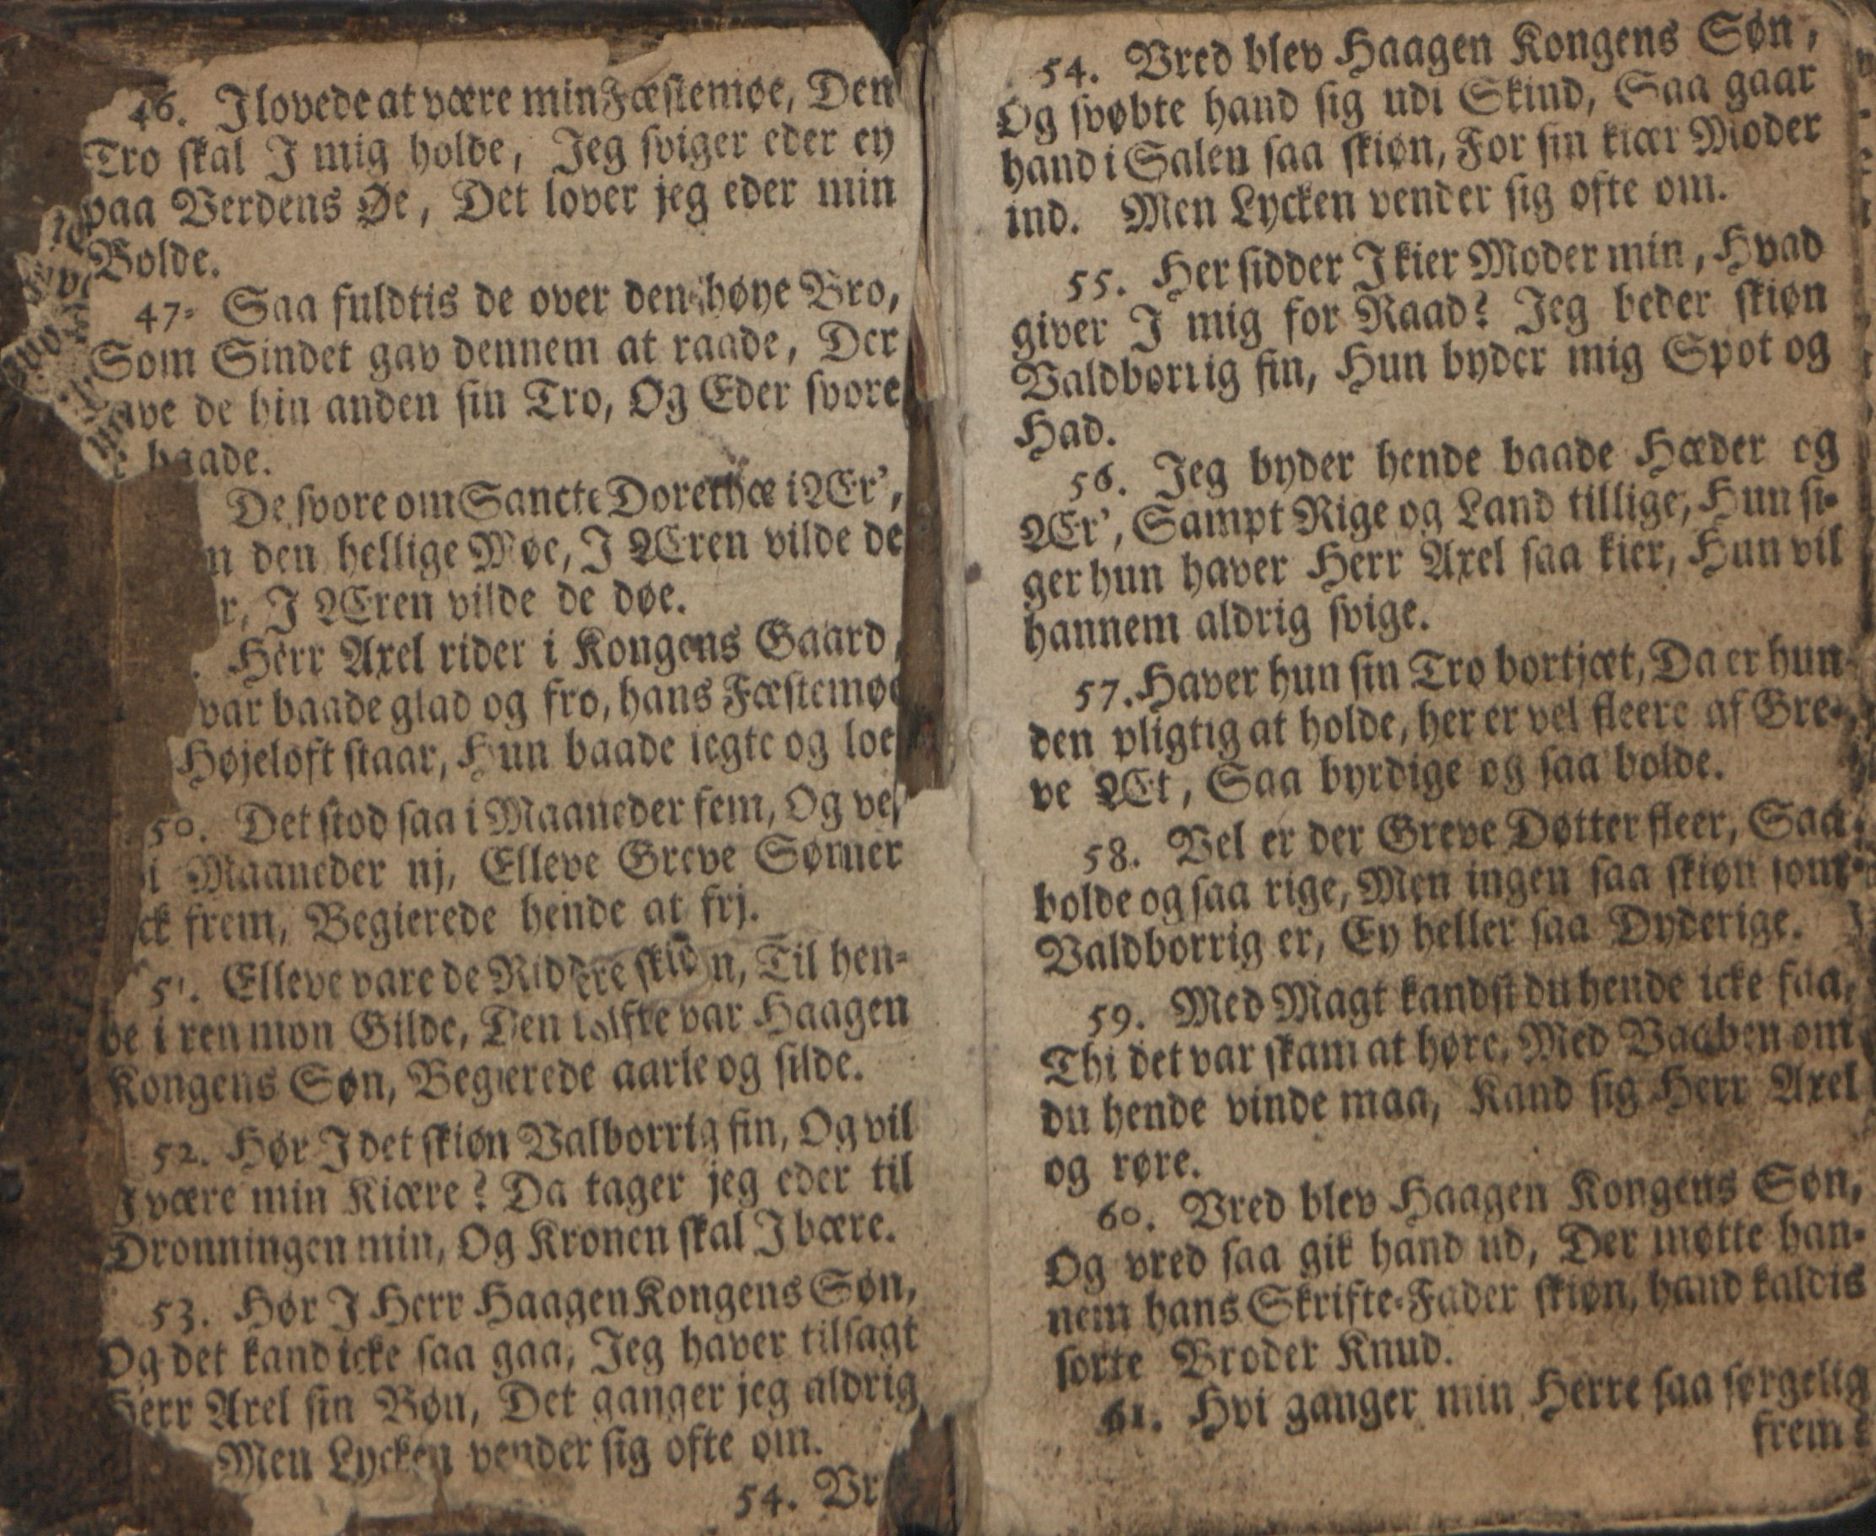 46. I lovede at være min Fæstemøe, Den
Tro skal I mig holde, Jeg sviger eder ey
paa Verdens Øe, Det lover jeg eder min
Bolde.
47. Saa fuldtis de over den høye Bro,
Som Sindet gav dennem at raade, Der
ave de hin anden sin Tro, Og Eder svore
baade.
De svore om Sancte Dorethæ i Ær',
n den hellige Møe, I Æren vilde de
r, I Æren vilde de døe.
Herr Axel rider i Kongens Gaard,
var baade glad og fro, hans Fæstemøe
Højeloft staar, Hun baade legte og loe
50. Det stod saa i Maaneder fem, Og vel
i Maaneder nj, Elleve Greve Sønner
ck frem, Begierede hende at frj.
51. Elleve vare de Riddere skiøn, Til hen-
de i ren mon Gilde, Den tolfte var Haagen
Kongens Søn, Begierede aarle og silde.
52. Hør I det skiøn Valborrig fin, Og vil
I være min Kiære? Da tager jeg eder til
Dronningen min, Og Kronen skal I bære.
53. Hør I Herr Haagen Kongens Søn,
Og det kand icke saa gaa, Jeg haver tilsagt
Herr Axel sin Bøn, Det ganger jeg aldrig
Men Lycken vender sig ofte om.
54. Vr
54. Vred blev Haagen Kongens Søn,
Og svøbte hand sig udi Skind, Saa gaar
hand i Salen saa skiøn, For sin kiær Moder
ind. Men Lycken vender sig ofte om.
55. Her sidder I kier Moder min, Hvad
giver I mig for Raad? Jeg beder skiøn
Valdborrig fin, Hun byder mig Spot og
Had.
56. Jeg byder hende baade Hæder og
Ær', Sampt Rige og Land tillige, Hun si-
ger hun haver Herr Axel saa kier, Hun vil
hannem aldrig svige.
57. Haver hun sin Tro bortjæt, Da er hun
den pligtig at holde, her er vel fleere af Gre-
ve Æt, Saa byrdige og saa bolde.
58. Vel er der Greve Døtter fleer, Saa
bolde og saa rige, Men ingen saa skiøn som
Valdborrig er, Ey heller saa Dyderige.
59. Med Magt kandst du hende icke faa,
Thi det var skam at høre, Med Vaaben om
du hende vinde maa, Kand sig Herr Axel
og røre.
60. Vred blev Haagen Kongens Søn,
Og vred saa gik hand ud, Der møtte han-
nem hans Skrifte-Fader skiøn, hand kaldis
sorte Broder Knud.
61. Hvi ganger min Herre saa sørgelig
frem